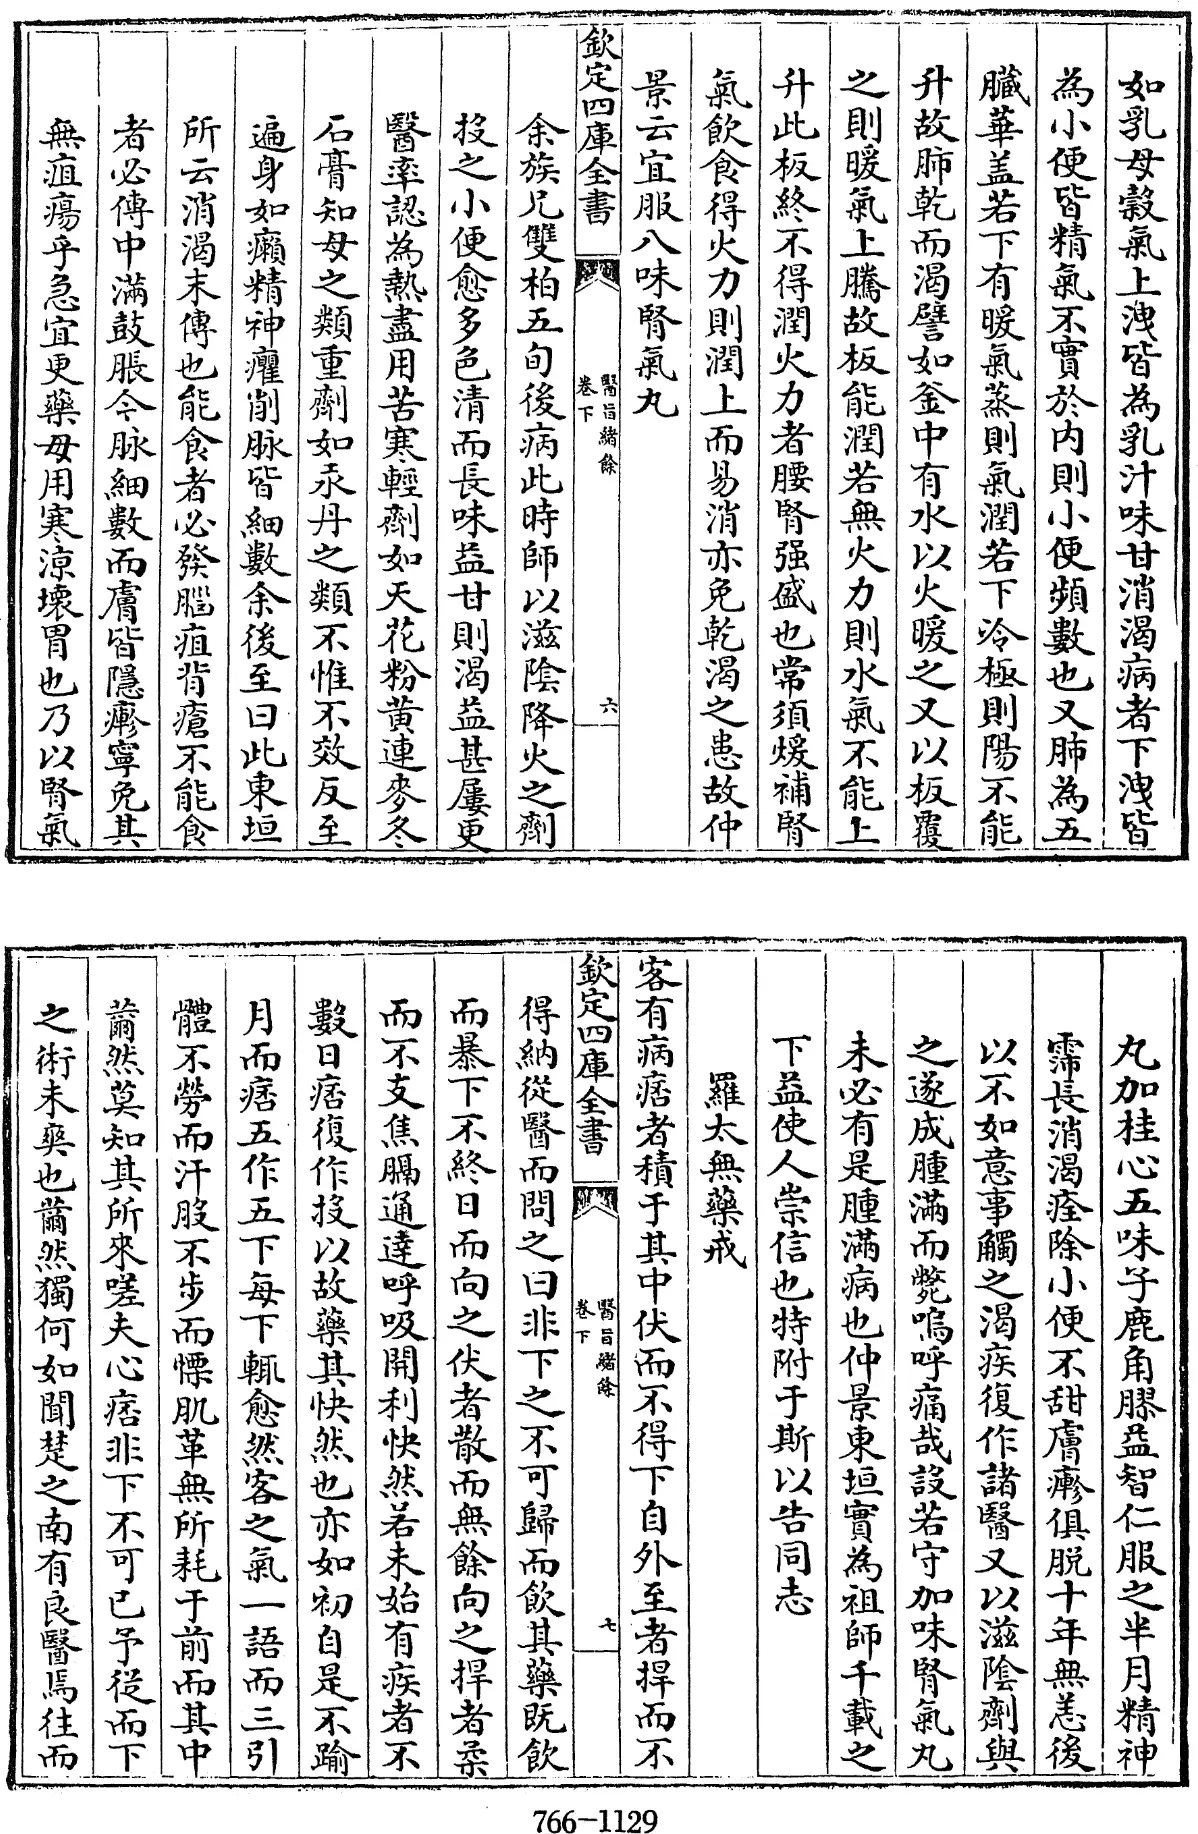 如乳母穀氣上洩皆為乳汁味甘消渴病者下洩皆
為小便皆精氣不實於内則小便頻數也又肺為五
臟華盖若下有暖氣蒸則氣潤若下冷極則陽不能
升故肺乾而渴譬如釜中有水以火暖之又以板覆
之則暖氣上騰故板能潤若無火力則水氣不能上
升此板終不得潤火力者腰腎强盛也常須煖補腎
氣飲食得火力則潤上而易消亦免乾渴之患故仲
景云宜服八味腎氣丸
欽定四庫全書
醫旨緒餘
卷下
六
余族兄雙柏五旬後病此時師以滋陰降火之劑
投之小便愈多色清而長味益甘則渴益甚屢更
醫率認為熱盡用苦寒輕劑如天花粉黄連麥冬
石膏知母之類重劑如汞丹之類不惟不效反至
遍身如癩精神癯削脉皆細數余後至曰此東垣
所云消渴末傳也能食者必發腦疽背瘡不能食
者必傳中滿鼓脹今脉細數而膚皆隱疹寧免其
無疽瘍乎急宜更藥毋用寒涼壊胃也乃以腎氣
丸加桂心五味子鹿角膠益智仁服之半月精神
霈長消渴痊除小便不甜膚疹俱脱十年無恙後
以不如意事觸之渴疾復作諸醫又以滋陰劑與
之遂成腫滿而斃嗚呼痛哉設若守加味腎氣丸
未必有是腫滿病也仲景東垣實為祖師千載之
下益使人崇信也特附于斯以告同志
羅太無藥戒
客有病痞者積于其中伏而不得下自外至者捍而不
欽定四庫全書
醫旨緒餘
卷下
七
得納從醫而問之曰非下之不可歸而飲其藥既飲
而暴下不終日而向之伏者散而無餘向之捍者柔
而不支焦膈通達呼吸開利快然若未始有疾者不
數日痞復作投以故藥其快然也亦如初自是不踰
月而痞五作五下每下輒愈然客之氣一語而三引
體不勞而汗股不步而慄肌革無所耗于前而其中
薾然莫知其所來嗟夫心痞非下不可已予從而下
之術未爽也薾然獨何如聞楚之南有良醫焉往而
766-1129